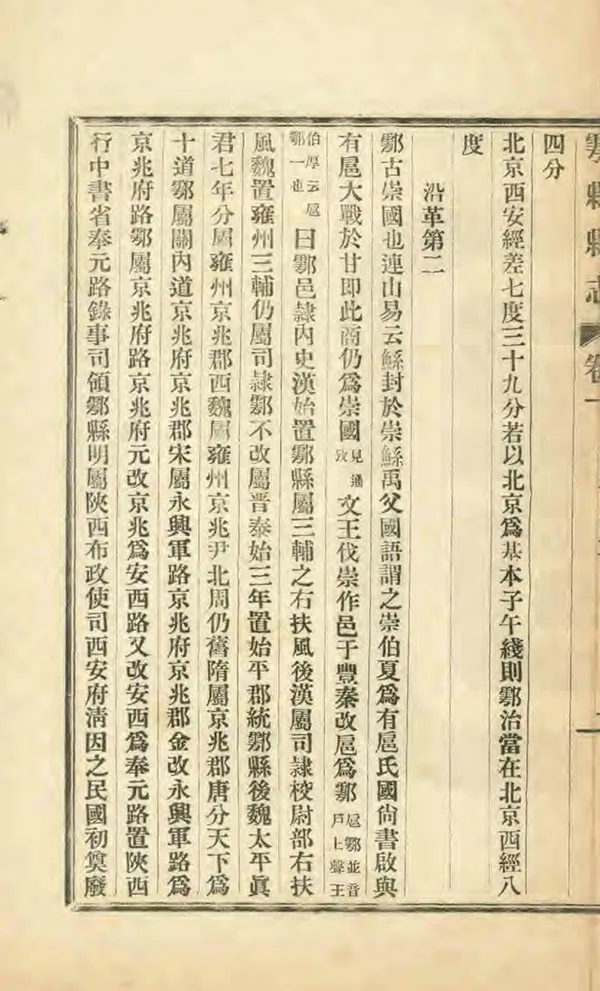 鄠縣縣志 卷一
四分
北京西安經差七度三十九分若以北京爲基本子午綫則鄠治當在北京西經八
度
沿革第二
鄠古崇國也連山易云鯀封於崇鯀禹父國語謂之崇伯夏爲有扈氏國尙書啟與
有扈大戰於甘即此商仍爲崇國見通攷文王伐崇作邑于豐秦改扈爲鄠扈鄠並音戶上聲王
伯厚云扈鄠一也曰鄠邑隸內史漢始置鄠縣屬三輔之右扶風後漢屬司隸校尉部右扶
風魏置雍州三輔仍屬司隸鄠不改屬晋泰始三年置始平郡統鄠縣後魏太平眞
君七年分屬雍州京兆郡西魏屬雍州京兆尹北周仍舊隋屬京兆郡唐分天下爲
十道鄠屬關內道京兆府京兆郡宋屬永興軍路京兆府京兆郡金改永興軍路爲
京兆府路鄠屬京兆府路京兆府元改京兆爲安西路又改安西爲奉元路置陝西
行中書省奉元路錄事司領鄠縣明屬陝西布政使司西安府淸因之民國初奠廢